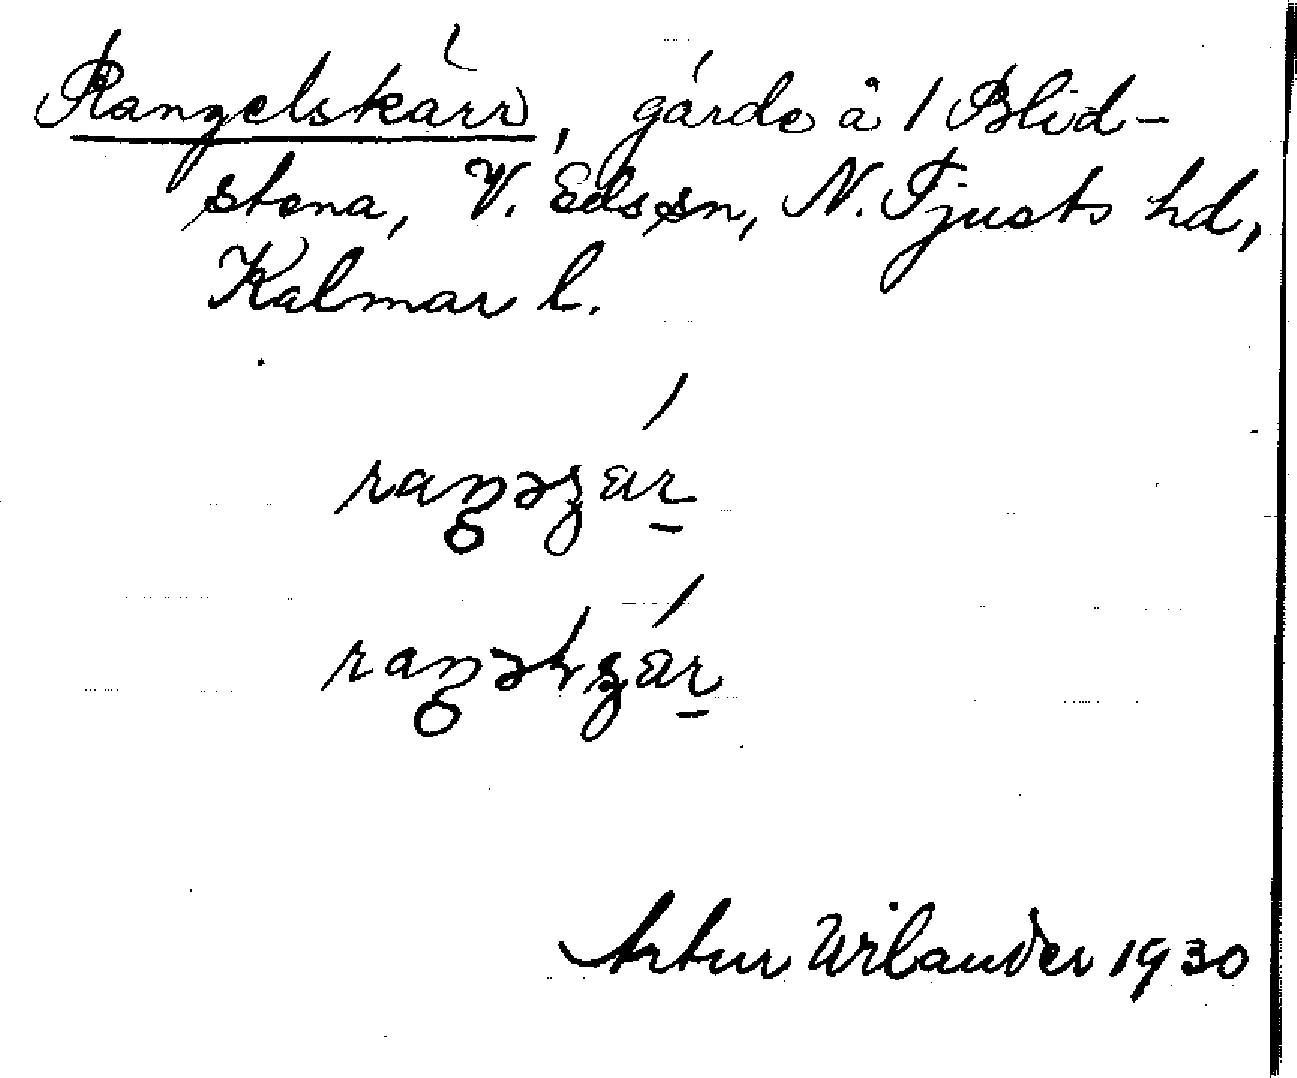 Rangelskärr, gärde å 1 Blid-
stena, V. Eds sn, N. Tjusts hd,
Kalmar l.
Artur Wilander 1930